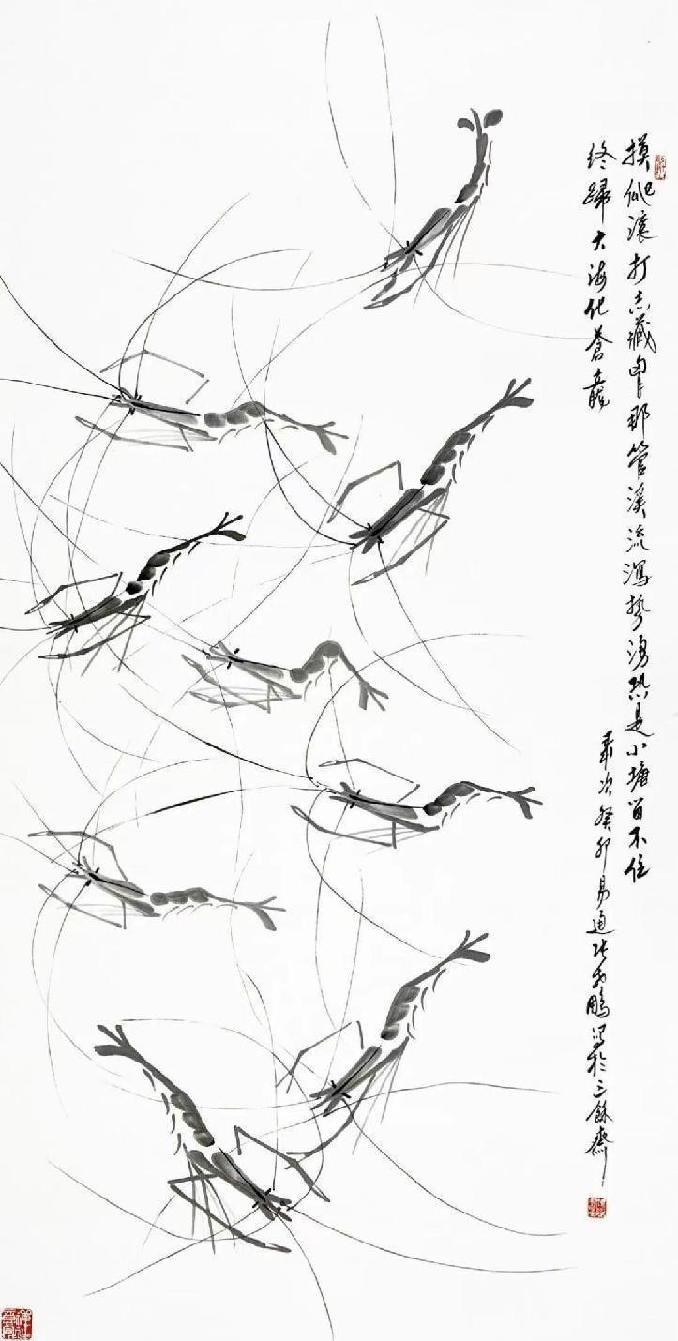 摸爬滚打去藏甲那管溪流泻势汹恐是小塘留不住
终归大海化苍龙
岁次癸卯易通张秀鹏写於三馀斋